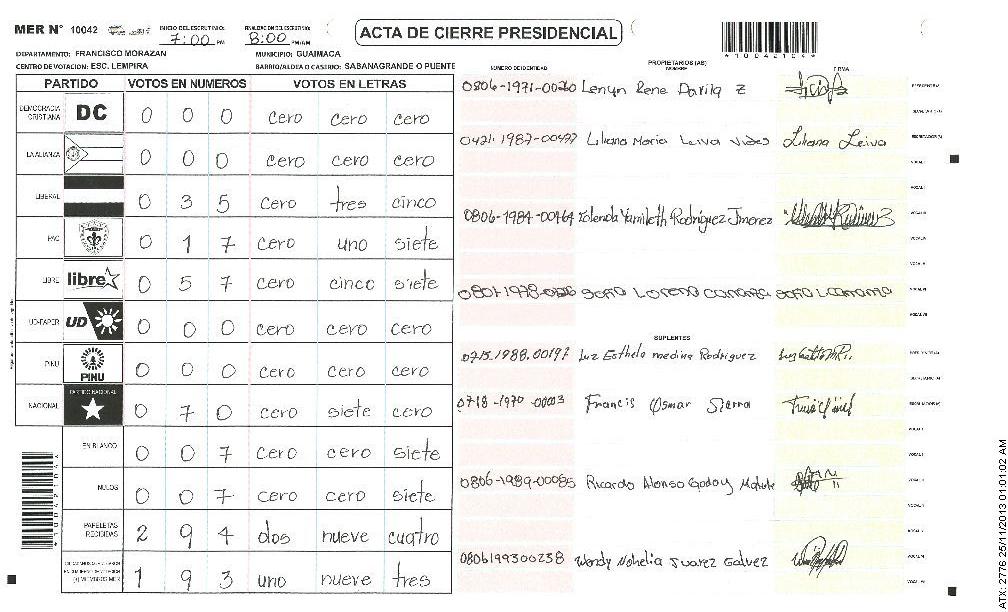 MER N° 10042 INICIO DEL ESCRUTINIO: 7:00 PM FINALIZACION DEL ESCRUTINIO: 8:00 PM/AM ACTA DE CIERRE PRESIDENCIAL
*10042104*
DEPARTAMENTO: FRANCISCO MORAZAN MUNICIPIO: GUAIMACA
CENTRO DE VOTACION: ESC. LEMPIRA BARRIO/ALDEA O CASERIO: SABANAGRANDE O PUENTE
PARTIDO VOTOS EN NUMEROS VOTOS EN LETRAS
DEMOCRACIA CRISTIANA DC 0 0 0 cero cero cero
LA ALIANZA 0 0 0 cero cero cero
LIBERAL 0 3 5 cero tres cinco
PAC 0 1 7 cero uno siete
LIBRE libre 0 5 7 cero cinco siete
UD-FAPER UD 0 0 0 cero cero cero
PINU PINU 0 0 0 cero cero cero
NACIONAL PARTIDO NACIONAL 0 7 0 cero siete cero
EN BLANCO 0 0 7 cero cero siete
NULOS 0 0 7 cero cero siete
PAPELETAS RECIBIDAS 2 9 4 dos nueve cuatro
1 9 3 uno nueve tres
PROPIETARIOS (AS)
NUMERO DE IDENTIDAD NOMBRE FIRMA
Lenyn Rene Davila Z
Liliana Maria Leiva Liliana Leiva
0806-1984-00464 Yolenda Yamileth Rodriguez
SUPLENTES
0715.1988.00197 Luz Esthela medina Rodriguez
0718-1970-00003 Francis Osmar Sierra
0806-1989-00085 Ricardo Alonso Godoy
0806199300238 Wendy Nohelia Juarez Galvez
*10042104*
ATX: 2776 25/11/2013 01:01:02 AM